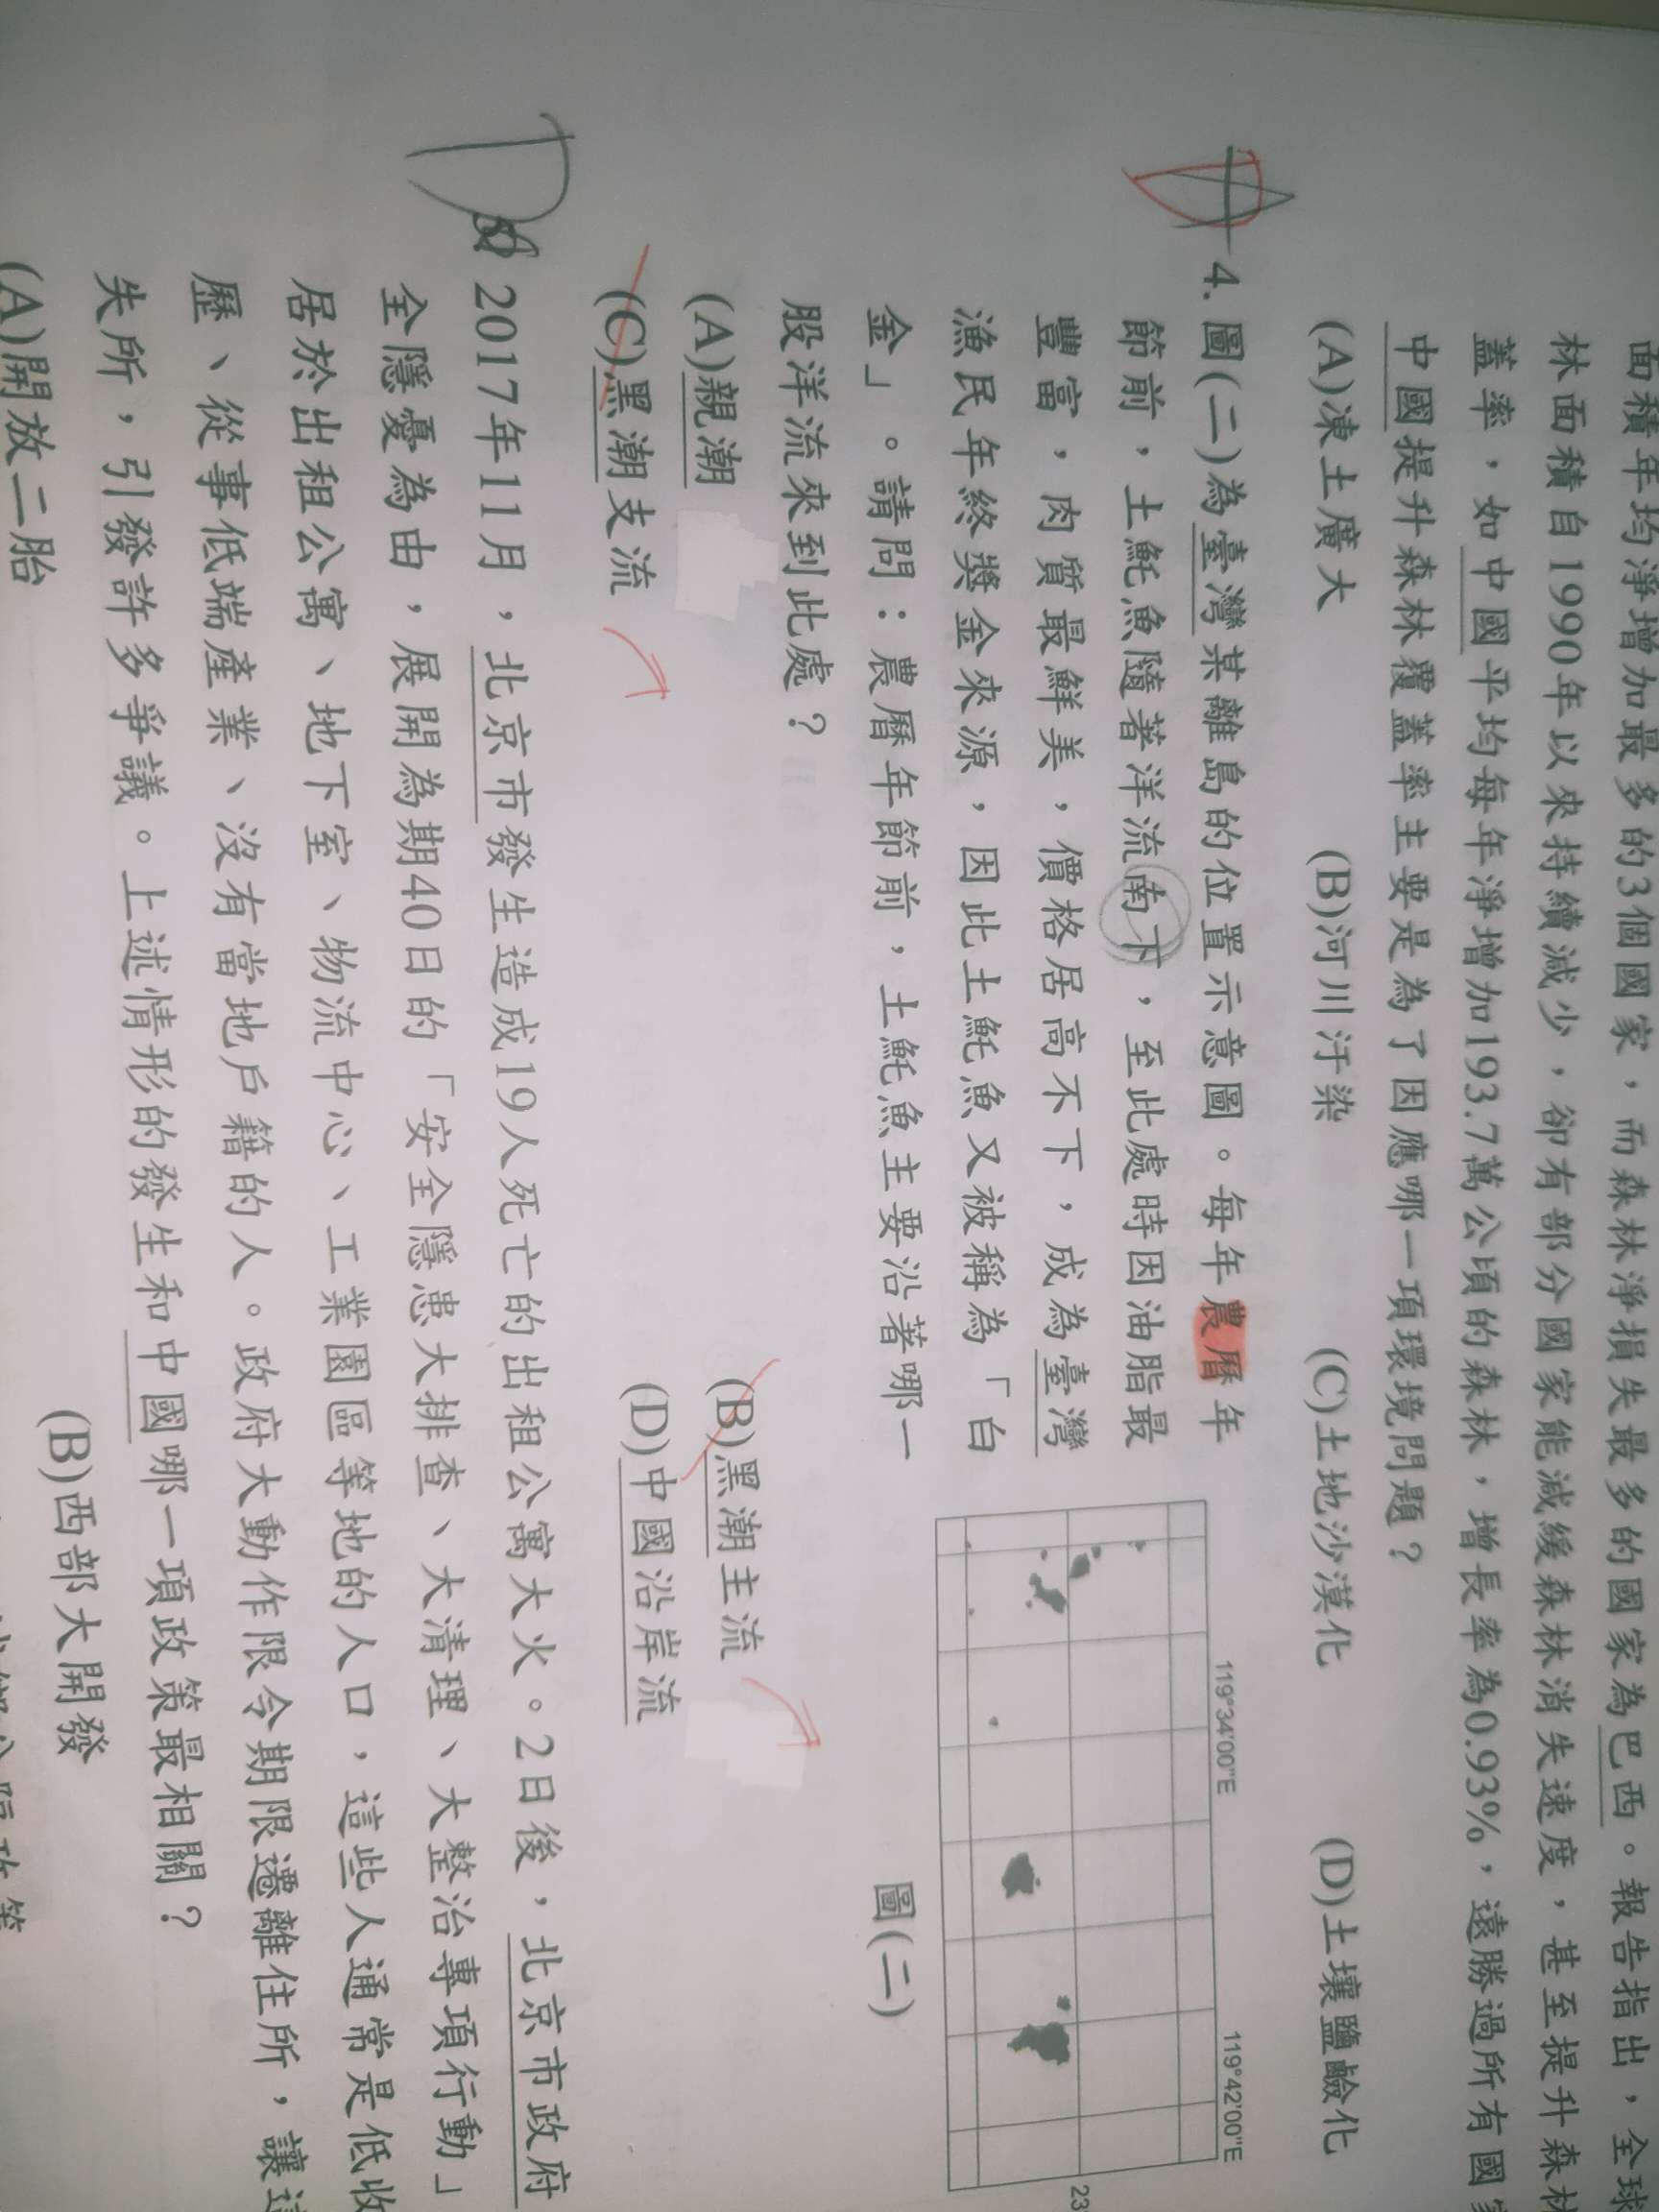 面積年均淨增加最多的3個國家，而森林淨損失最多的國家為巴西。報告指出，全球
林面積自1990年以來持續減少，卻有部分國家能減緩森林消失速度，甚至提升森林
蓋率，如中國平均每年淨增加193.7萬公頃的森林，增長率為0.93%，遠勝過所有國
中國提升森林覆蓋率主要是為了因應哪一項環境問題？
(A)凍土廣大 (B)河川汙染 (C)土地沙漠化 (D)土壤鹽鹼化
4. 圖(二)為臺灣某離島的位置示意圖。每年農曆年
節前，土魠魚隨著洋流南下，至此處時因油脂最
豐富，肉質最鮮美，價格居高不下，成為臺灣
漁民年終獎金來源，因此土魠魚又被稱為「白
金」。請問：農曆年節前，土魠魚主要沿著哪一
股洋流來到此處？
119°34'00"E 119°42'00"E
23
圖(二)
(A)親潮 (B)黑潮主流
(C)黑潮支流 (D)中國沿岸流
D
2017年11月，北京市發生造成19人死亡的出租公寓大火。2日後，北京市政府
全隱憂為由，展開為期40日的「安全隱患大排查、大清理、大整治專項行動」
居於出租公寓、地下室、物流中心、工業園區等地的人口，這些人通常是低收
歷、從事低端產業、沒有當地戶籍的人。政府大動作限令期限遷離住所，讓這
失所，引發許多爭議。上述情形的發生和中國哪一項政策最相關？
(A)開放二胎 (B)西部大開發